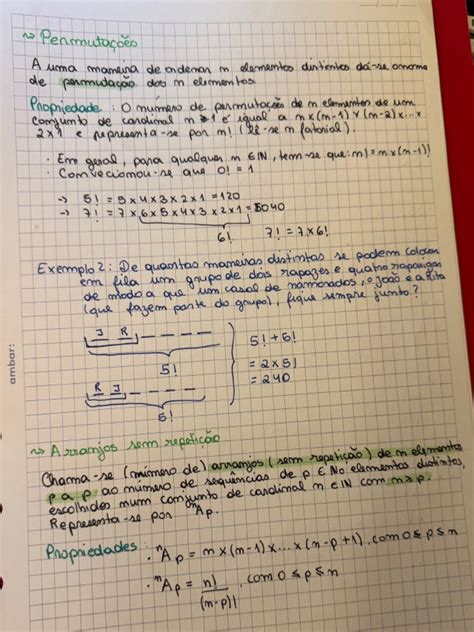 ~> Permutações
A uma maneira de ordenar n elementos distintos dá-se o nome
de permutação dos n elementos
Propriedade: O número de permutações de n elementos de um
conjunto de cardinal n ≥ 1 é igual a n×(n-1)×(n-2)×...×
2×1 e representa-se por n! (lê-se n fatorial).
· Em geral, para qualquer n ∈ IN, tem-se que: n! = n×(n-1)!
· Convencionou-se que 0! = 1
-> 5! = 5×4×3×2×1 = 120
-> 7! = 7×6×5×4×3×2×1 = 5040
6!
7! = 7×6!
Exemplo 2: De quantas maneiras distintas se podem colocar
em fila um grupo de dois rapazes e quatro raparigas
de modo a que um casal de namorados, o João e a Rita
(que fazem parte do grupo), fique sempre junto?
J R _ _ _ _
5!
R J _ _ _ _
5!
5! + 5!
= 2×5!
= 240
ambar:
~> Arranjos sem repetição
Chama-se (número de) arranjos (sem repetição) de n elementos
p a p ao número de sequências de p ∈ No elementos distintos
escolhidos num conjunto de cardinal n ∈ IN com n ≥ p.
Representa-se por ⁿAp.
Propriedades: · ⁿAp = n×(n-1)×...×(n-p+1), com 0 ≤ p ≤ n
· ⁿAp = n!/(n-p)!, com 0 ≤ p ≤ n